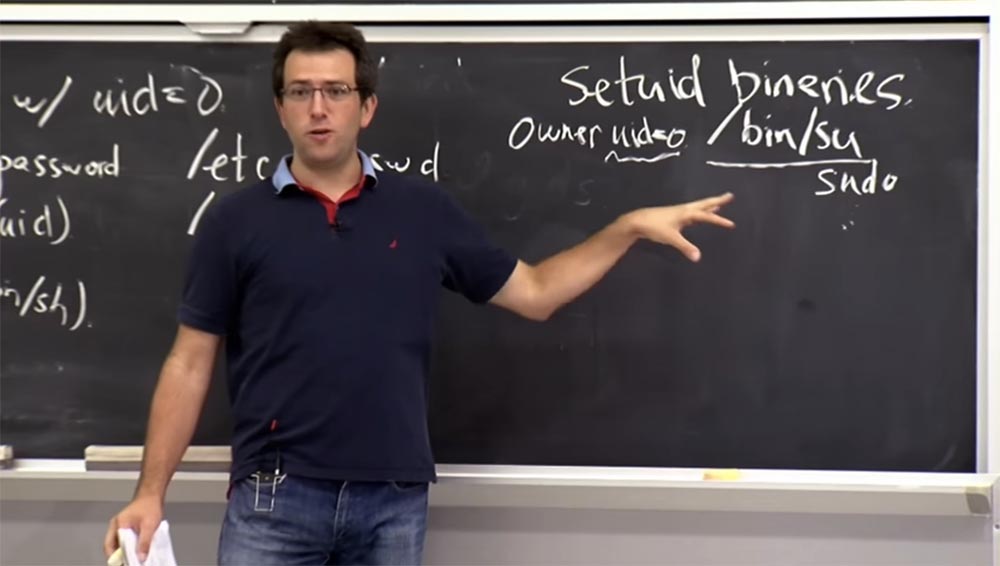 w/ uid=0.
password
/etc
swd
uid).
in/sh).
Setuid bineries.
Owner uid=0 /bin/su
sudo